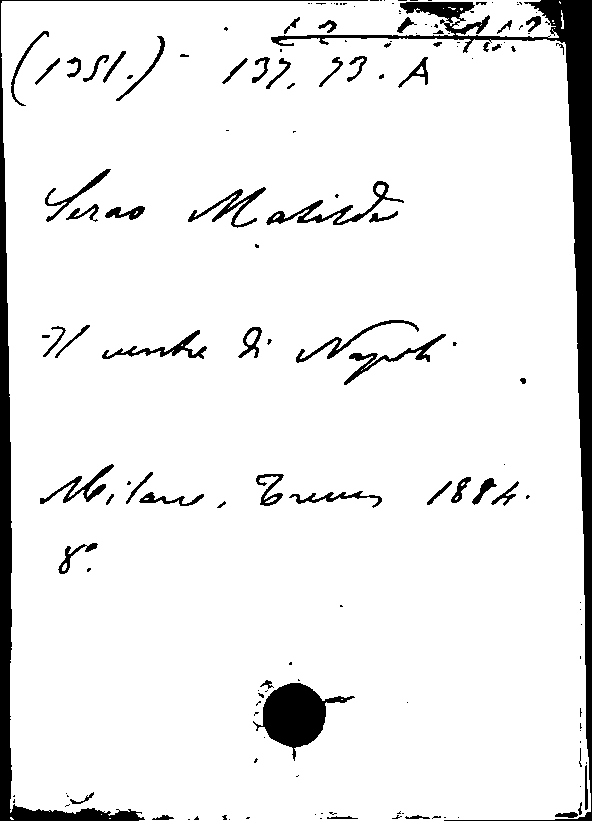 (1351.) - 137. 73. A
Serao Matilde
Il ventre di Napoli
Milano, Treves 1884.
8°.